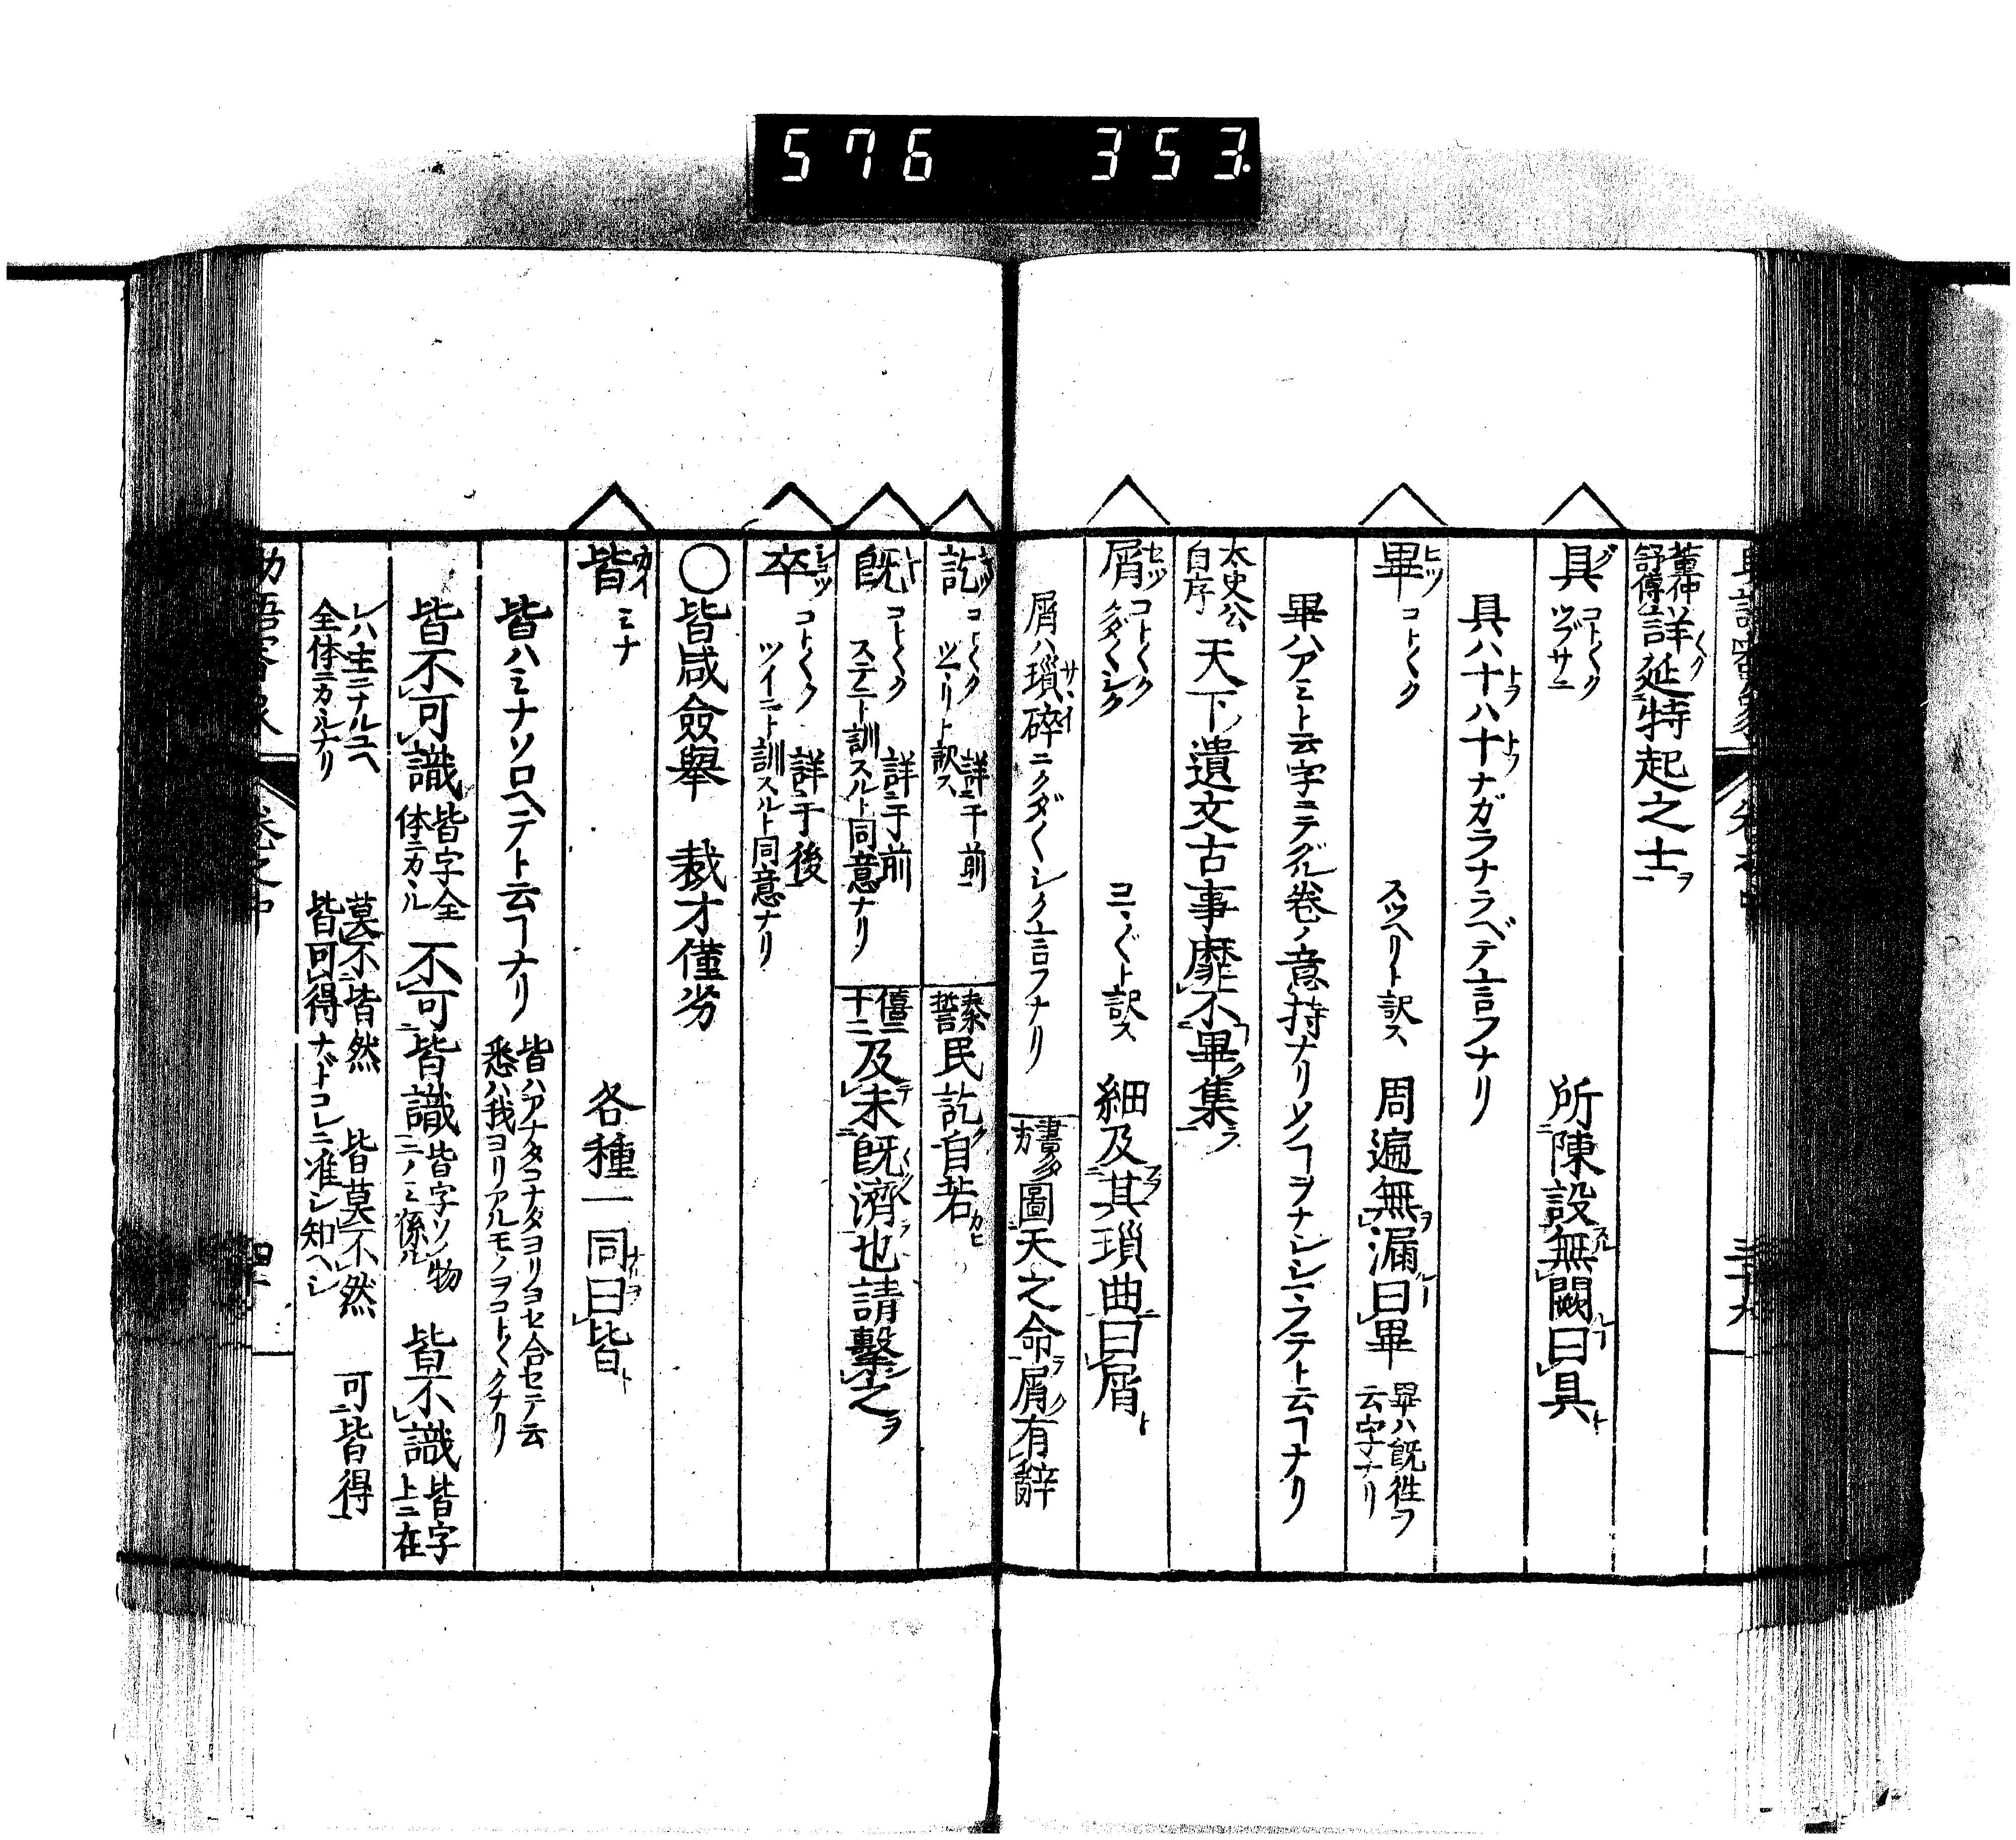 576 353.
董仲舒傳 詳延特起之士ヲ
具 グ コト〱ク ツブサニ 所陳設スル無闕ルヿ曰具ト
具ハ十ヲハ十ヲナガラナラベテ言フナリ
畢 ヒツ コト〱ク スツヘリト訳ス 周遍無漏ルヿヲ曰畢 畢ハ既徃ヲ云字ナリ
畢ハアミト云字ニテ 卷ノ意持ナリソノコヲナシシマフテト云ヿナリ
太史公自序 天下ノ遺文古事靡不畢集ラ
屑 セツ コト〱ク クダ〱シク コマ〲ト訳ス 細及其瑣曲ニ曰屑ト
屑ハ瑣碎サヽイニクダ〱シク言フナリ 書多方 圖天之命屑有辭
訖 コト〱ク ツマリト訳ス 詳于前 秦誓 民訖自若
既 コト〱ク ステニト訓スルト同意ナリ 詳于前 僖二十二 及未既濟也請擊之ヲ
卒 シユツ コト〱ク ツイニト訓スルト同意ナリ 詳于後
○皆咸僉舉 裁才僅劣
皆 カイ ミナ 各種一同ナルヲ曰皆ト
皆ハミナソロヘテト云ヿナリ 皆ハアナタコナタヨリヨセ合セテ云 悉ハ我ヨリアルモノヲコト〱クナリ
皆不可識 皆字全体ニカヽル 不可皆識 皆字ソノ物ニノミ係ル 皆不識 皆字上ニ在
レハ主ニナルユヘ全体ニカヽルナリ 莫不皆然 皆莫不然 可皆得 皆可得ナドコレニ准シ知ヘシ